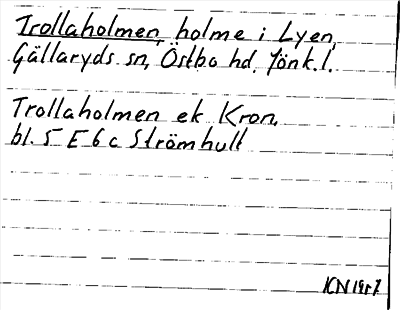 Trollaholmen, holme i Lyen,
Gällaryds sn, Östbo hd. Jönk.l.
Trollaholmen ek Kron.
bl. 5 E 6 c Strömhult